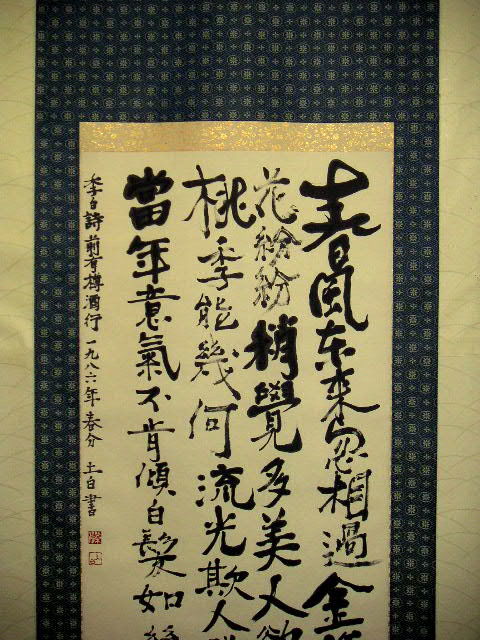 春風东来忽相過金
花紛紛稍覺多美人欲
桃李能幾何流光欺人
當年意氣不肯傾白髮如
李白詩前有樽酒行 一九八六年春分 土白書